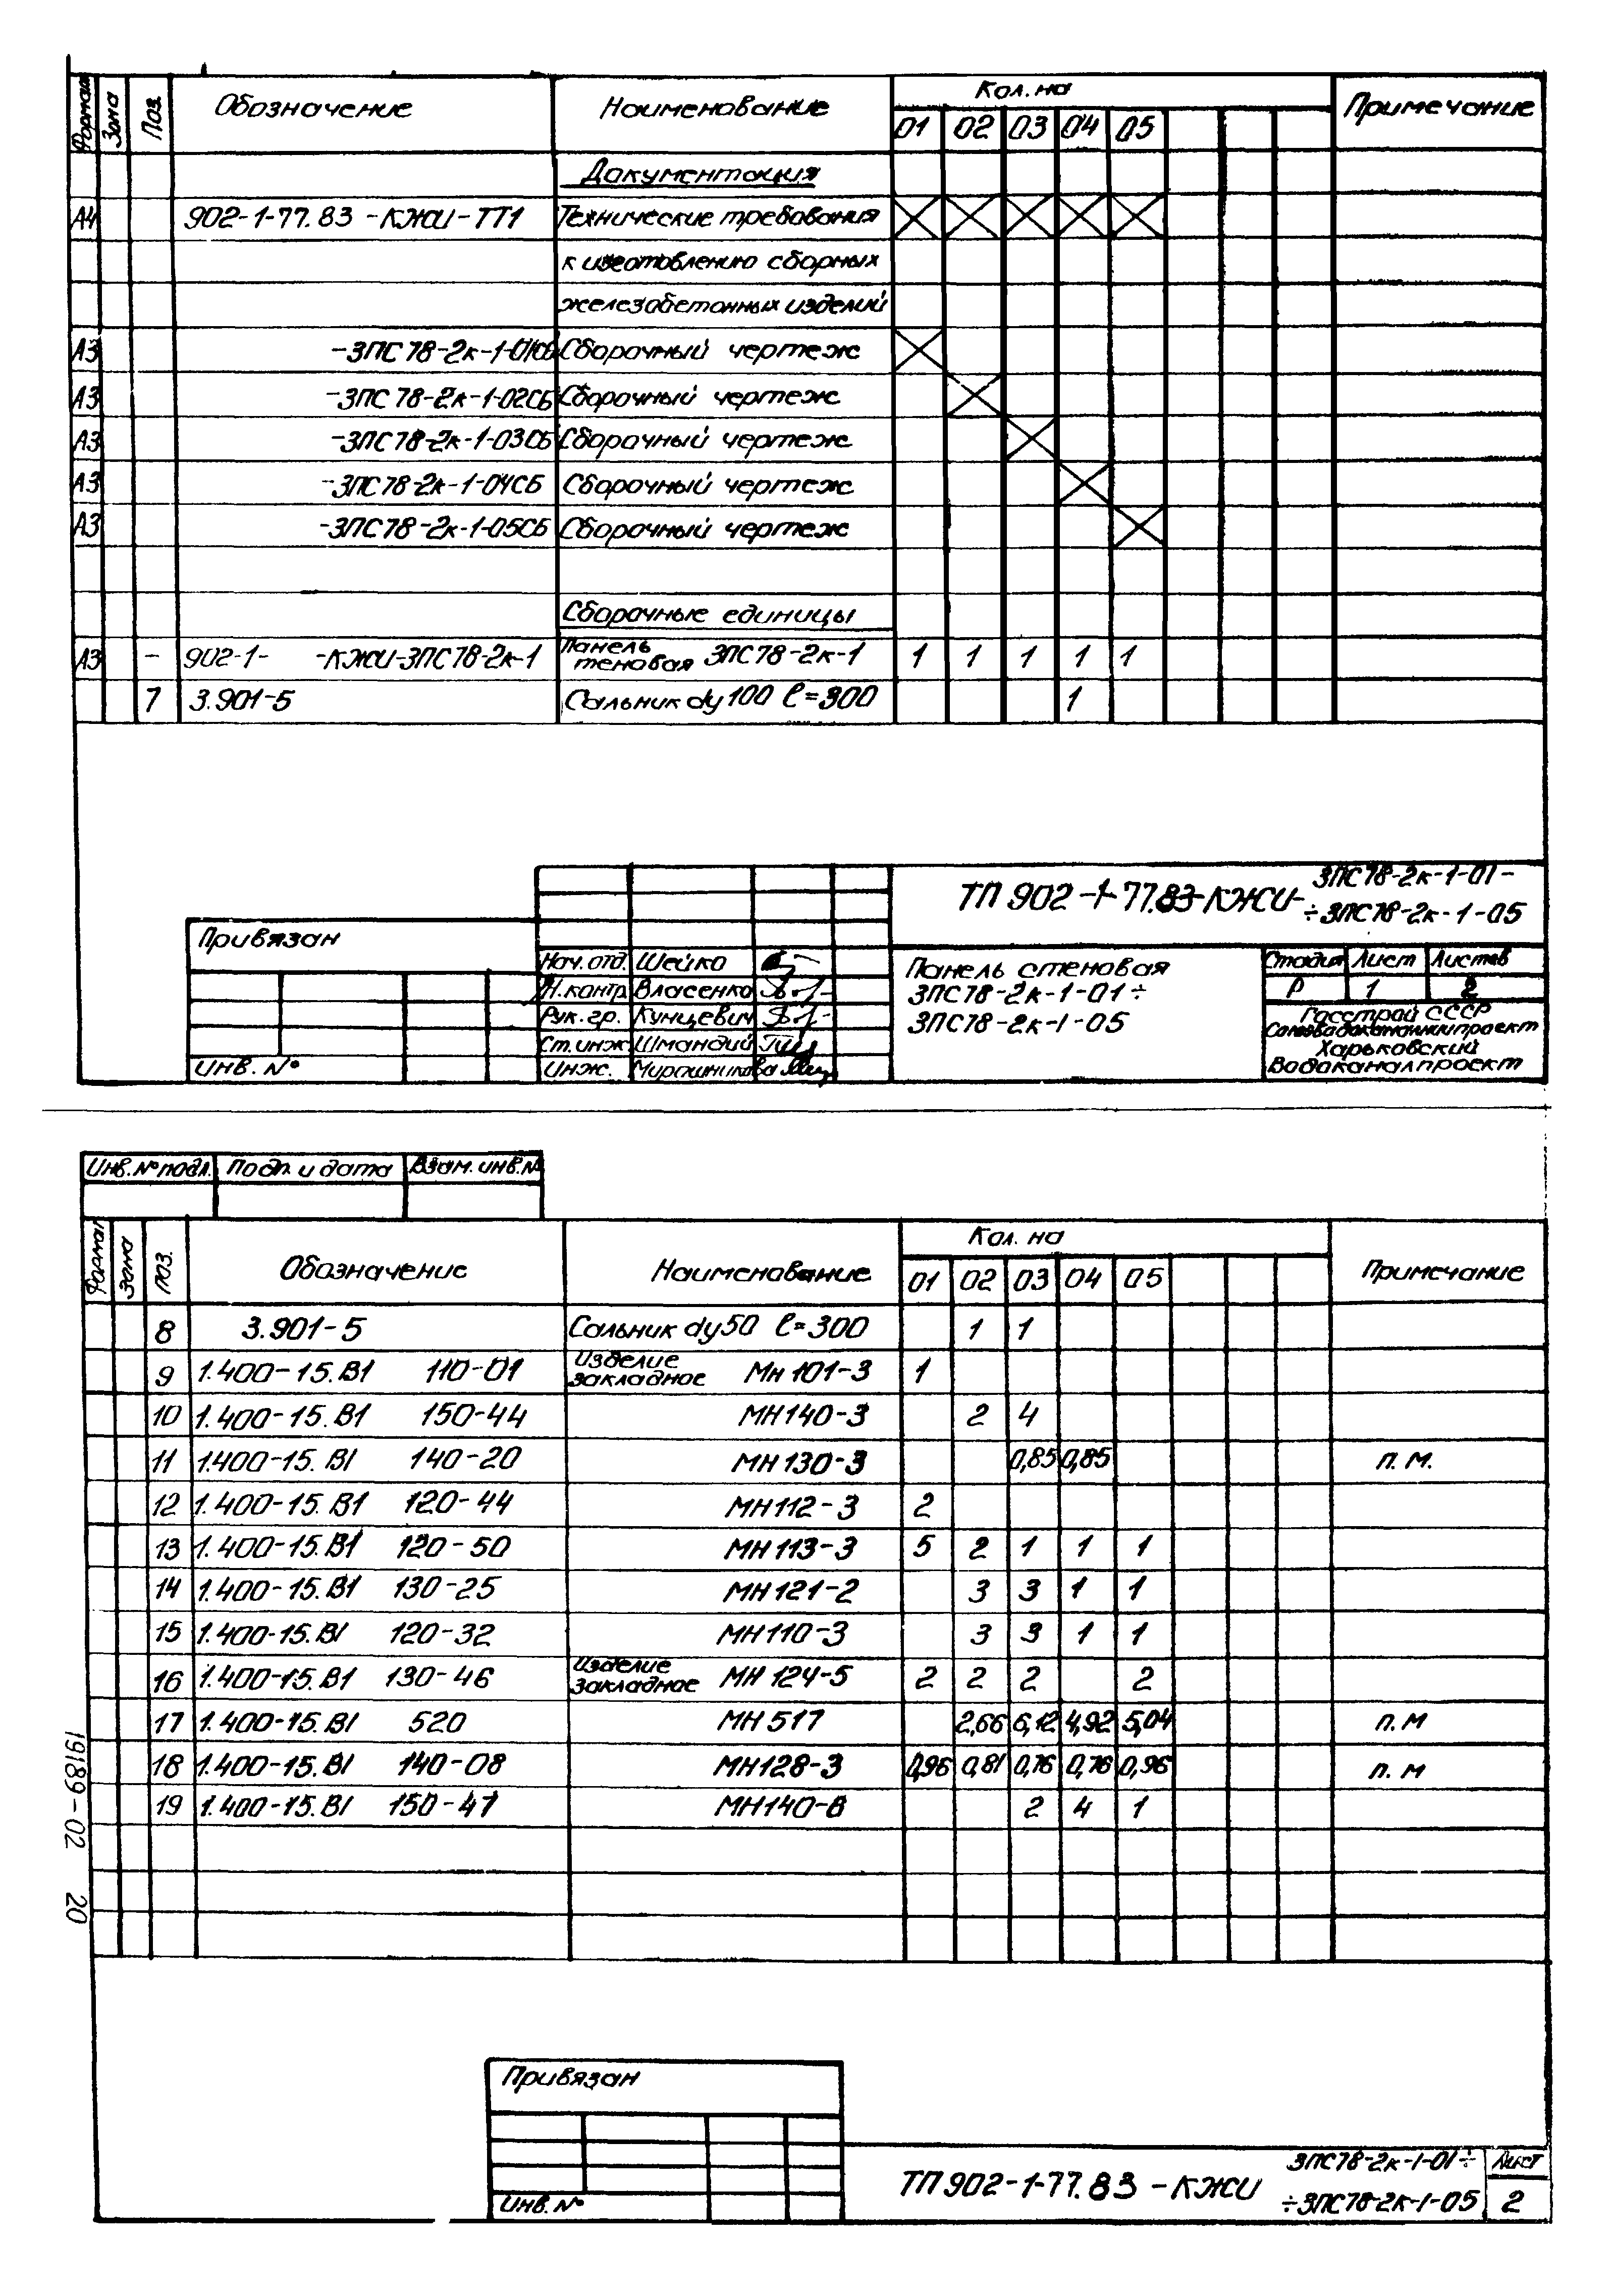 Формат Зона Поз. Обозначение Наименование Кол. на Примечание
01 02 03 04 05
Документация
А4 902-1-77.83-КЖИ-ТТ1 Технические требования
к изготовлению сборных
железобетонных изделий
А3 -3ПС78-2к-1-01СБ Сборочный чертеж
А3 -3ПС78-2к-1-02СБ Сборочный чертеж
А3 -3ПС78-2к-1-03СБ Сборочный чертеж
А3 -3ПС78-2к-1-04СБ Сборочный чертеж
А3 -3ПС78-2к-1-05СБ Сборочный чертеж
Сборочные единицы
А3 - 902-1- -КЖИ-3ПС78-2к-1 Панель теновая 3ПС78-2к-1 1 1 1 1 1
7 3.901-5 Сальник dy 100 ℓ=300 1
ТП 902-1-77.83-КЖИ- 3ПС78-2к-1-01-
÷3ПС78-2к-1-05
Привязан
Нач. отд. Шейко
Н. контр. Власенко
Рук. гр. Кунцевич
Ст. инж. Шмандий
Инж. Мирошникова
Инв. №
Панель стеновая
3ПС78-2к-1-01÷
3ПС78-2к-1-05
Стадия Лист Листов
Р 1 2
Госстрой СССР
Союзводоканалниипроект
Харьковский
Водоканалпроект
Инв. № подл. Подп. и дата Взам. инв. №
Формат Зона Поз. Обозначение Наименование Кол. на Примечание
01 02 03 04 05
8 3.901-5 Сальник dy 50 ℓ=300 1 1
9 1.400-15.В1 110-01 Изделие закладное Мн 101-3 1
10 1.400-15.В1 150-44 МН 140-3 2 4
11 1.400-15.В1 140-20 МН 130-3 0,85 0,85 п.м.
12 1.400-15.В1 120-44 МН 112-3 2
13 1.400-15.В1 120-50 МН 113-3 5 2 1 1 1
14 1.400-15.В1 130-25 МН 121-2 3 3 1 1
15 1.400-15.В1 120-32 МН 110-3 3 3 1 1
16 1.400-15.В1 130-46 Изделие закладное МН 124-5 2 2 2 2
17 1.400-15.В1 520 МН 517 2,66 6,12 4,92 5,04 п.м
18 1.400-15.В1 140-08 МН 128-3 0,96 0,81 0,76 0,76 0,96 п.м
19 1.400-15.В1 150-47 МН 140-6 2 4 1
19189-02 20
Привязан
Инв. №
ТП 902-1-77.83-КЖИ 3ПС78-2к-1-01÷
÷3ПС78-2к-1-05
Лист
2